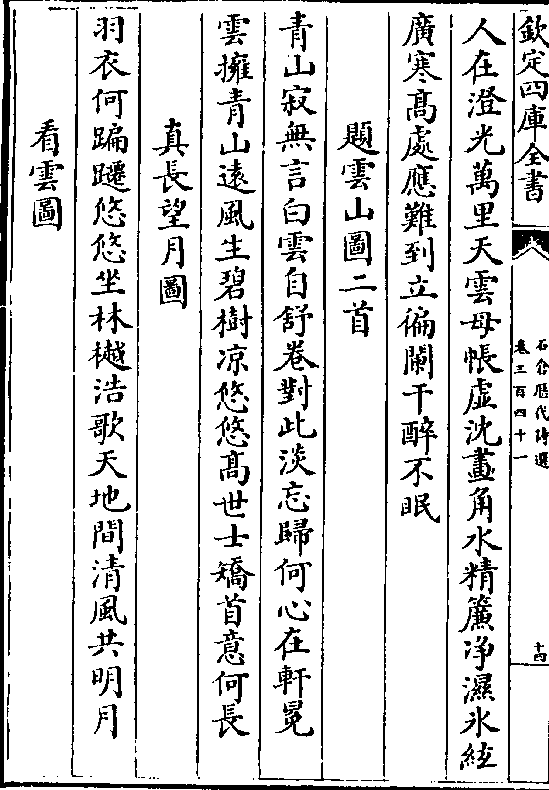 欽定四庫全書
石倉歷代詩選
卷三百四十一
十四
人在澄光萬里天雲母帳虛沈畫角水精簾净濕氷絃
廣寒髙處應難到立徧闌干醉不眠
題雲山圖二首
青山寂無言白雲自舒卷對此淡忘歸何心在軒冕
雲擁青山遠風生碧樹凉悠悠髙世士矯首意何長
真長望月圖
羽衣何蹁躚悠悠坐林樾浩歌天地間清風共明月
看雲圖